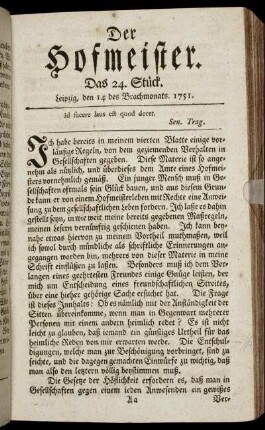 Der
Hofmeister.
Das 24. Stück.
Leipzig, den 14 des Brachmonats. 1751.
Id facere laus est quod decet.
Sen. Trag.
Ich habe bereits in meinem vierten Blatte einige vor-
läufige Regeln, von dem geziemenden Verhalten in
Gesellschaften gegeben. Diese Materie ist so ange-
nehm als nützlich, und überdieses dem Amte eines Hofmei-
sters vornehmlich gemäß. Ein junger Mensch muß in Ge-
sellschaften oftmals sein Glück bauen, und aus diesem Grun-
de kann er von einem Hofmeisterleben mit Rechte eine Anwei-
sung zu dem gesellschaftlichen Leben fordern. Ich lasse es dahin
gestellt seyn, in wie weit meine bereits gegebenen Maßregeln,
meinen Lesern vernünftig geschienen haben. Ich kann bey-
nahe etwas hiervon zu meinem Vortheil muthmaßen, weil
ich sowol durch mündliche als schriftliche Erinnerungen an-
gegangen worden bin, mehrers von dieser Materie in meine
Schrift einfließen zu lassen. Besonders muß ich dem Ver-
langen eines geehrtesten Freundes einige Gnüge leisten, der
mich um Entscheidung eines freundschaftlichen Streites,
über eine hieher gehörige Sache ersuchet hat. Die Frage
ist dieses Innhalts: Ob es nämlich mit der Anständigkeit der
Sitten übereinkomme, wenn man in Gegenwart mehrerer
Personen mit einem andern heimlich redet? Es ist nicht
leicht zu glauben, daß iemand ein günstiges Urtheil für das
heimliche Reden von mir erwarten werde. Die Entschul-
digungen, welche man zur Beschönigung vorbringet, sind zu
seichte, und die dagegen gemachten Einwürfe zu wichtig, daß
man also den letztern völlig beystimmen muß.
Die Gesetze der Höflichkeit erfordern es, daß man in
Gesellschaften gegen einem ieden Anwesenden ein gewisses
Aa
Ver-